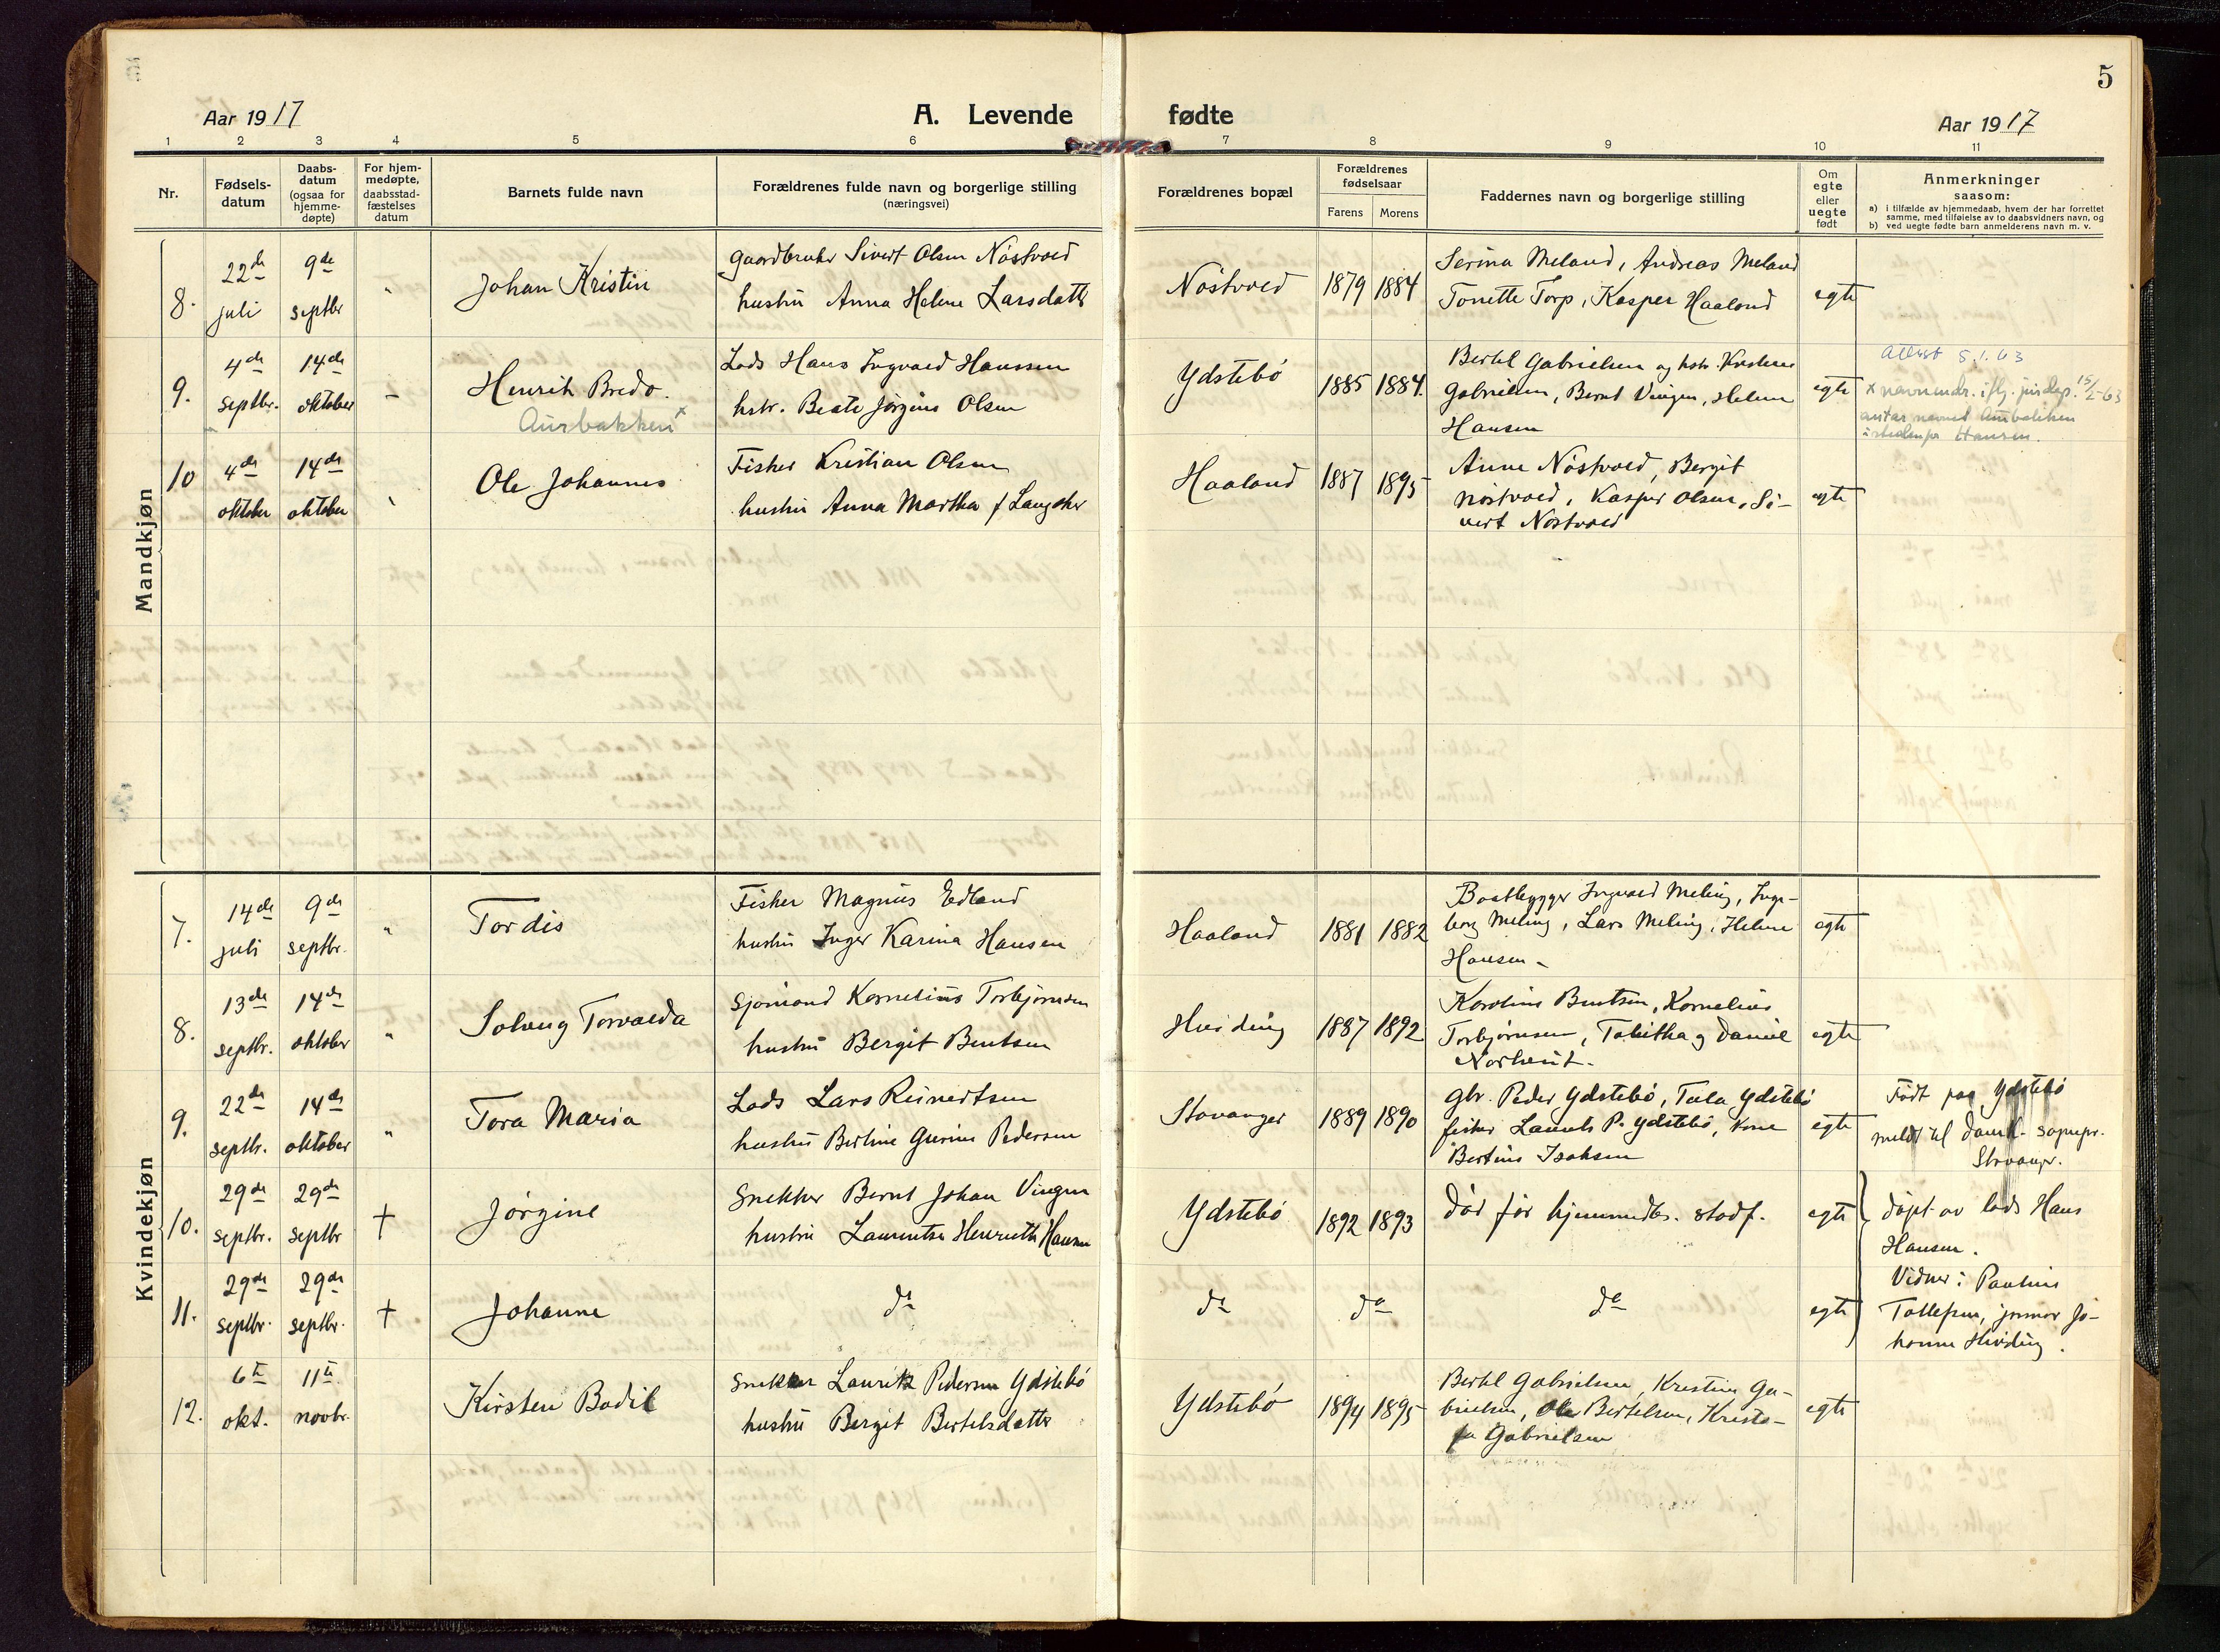 5
Aar 1917
A. Levende fødte
Aar 1917
1 2 3 4 5 6 7 8 9 10 11
Nr.
Fødsels-
datum
Daabs-
datum
(ogsaa for
hjemme-
døpte)
For hjem-
medøpte,
daabsstad-
fæstelses
datum
Barnets fulde navn
Forældrenes fulde navn og borgerlige stilling
(næringsvei)
Forældrenes bopæl
Forældrenes
fødselsaar
Farens Morens
Faddernes navn og borgerlige stilling
Om
egte
eller
uegte
født
Anmerkninger
saasom:
a) i tilfælde av hjemmedaab, hvem der har forrettet
samme, med tilføielse av to daabsvidners navn, og
b) ved uegte fødte barn anmelderens navn m. v.
Mandkjøn
8.
22de
juli
9de
septbr
"
Johan Kristin
gaardbruker Sivert Olsen Nøstvold
hustru Anna Helene Larsdatter
Nøstvold
1879 1884
Serina Meland, Andreas Meland
Tonette Torp, Kasper Haaland
egte
9.
4de
septbr.
14de
oktober
Henrik Bredo.
Aurbakken x
Lods Hans Ingvald Hanssen
hstr. Beate Jørgine Olsen
Ydstebö
1885 1884.
Bertel Gabrielsen og hstr. Kristine
Gabrielsen, Bernt Vingen, Helene
Hansen
egte
Attest 5.1.63
x navnendr. iflg. jusdep. 15/2-63
antar navnet Aurbakken
istedenfor Hansen.
10
4de
oktober
14de
oktober
Ole Johannes
Fisker Kristian Olsen
hustru Anna Martha f Langaker
Haaland
1887 1895
Anne Nøstvold, Bergit
Nøstvold, Kasper Olsen, Si-
vert Nøstvold
egte
Kvindekjøn
7.
14de
juli
9de
septbr.
"
Tordis
Fisker Magnus Edland
hustru Inger Karina Hansen
Haaland
1881 1882
Baatbygger Ingvald Meling, Inge-
borg Meling, Lars Meling, Helene
Hansen -
egte
8.
13de
septbr.
14de
oktober
"
Solveig Torvalda
Sjømand Kornelius Torbjørnsen
hustru Bergit Bentsen
Hviding
1887 1892
Karoline Bentsen, Kornelius
Torbjørnsen, Tabitha og Daniel
egte
9.
22de
septbr.
14de
oktober
"
Tora Maria
Lods Lars Reinertsen
hustru Bertine Gurine Pedersen
Stavanger
1889 1890
gbr. Peder Ydstebö, Tala Ydstebö
fisker Laurits P. Ydstebö, kone
Bertine Isaksen
egte
Født paa Ydstebö
meldt til Domk. sognepr.
Stavanger.
10.
29de
septbr.
29de
septbr
†
Jørgine
Snekker Bernt Johan Vingen
hustru Laurentse Henriette Hansen
Ydstebö
1892 1893
Død før hjemmedbs. stadf.
egte
døpt av lods Hans
Hansen.
Vidner: Pauline
Tollefsen, jormor Jo-
hanne Hviding.
11.
29de
septbr.
29de
septbr.
†
Johanne
do
do
do
do
egte
12.
6te
okt.
11te
novbr.
Kirsten Bodil
Snekker Lauritz Pedersen Ydstebö
hustru Bergit Bertelsdatter
Ydstebö
1894 1895
Bertel Gabrielsen, Kristine Ga-
brielsen, Ole Bertelsen, Kristo-
fer Gabrielsen
egte